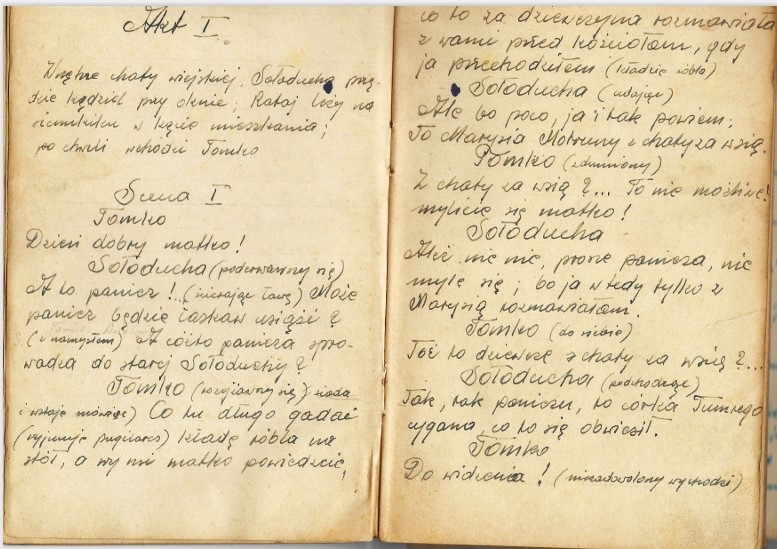 Akt I
Wnętrze chaty wiejskiej, Sołoducha przę-
dzie kądziel przy oknie; Rataj leży na
sienniku w kącie mieszkania;
po chwili wchodzi Tomko
Scena I
Tomko
Dzień dobry matko!
Sołoducha (poderwawszy się)
A to panicz!.. (ścierając ławę) Może
panicz będzie łaskaw usiąść?
(z namysłem) A cóż to panicza spro-
wadza do starej Sołoduchy?
Tomko (rozsiawszy się, siada
i wstaje mówiąc) Co tu długo gadać
(wyjmuje pugilares) kładę róbla na
stół, a wy mi matko powiedzcie,
co to za dziewczyna rozmawiała
z wami przed kościołem, gdy
ja przechodziłem (kładzie róbla)
Sołoducha (udając)
Ale bo poco, ja i tak powiem;
To Marysia Motruny z chaty za wsią.
Tomko (zdumiony)
Z chaty za wsią?... To nie możliwe!
mylicie się matko!
Sołoducha
Ależ nie nie, proszę panicza, nie
mylę się; bo ja wtedy tylko z
Marysią rozmawiałam.
Tomko (do siebie)
Toż to dziewczę z chaty za wsią?...
Sołoducha (podchodząc)
Tak, tak paniczu, to córka Tumrego
cygana, co to się obwiesił.
Tomko
Do widzenia! (niezadowolony wychodzi)